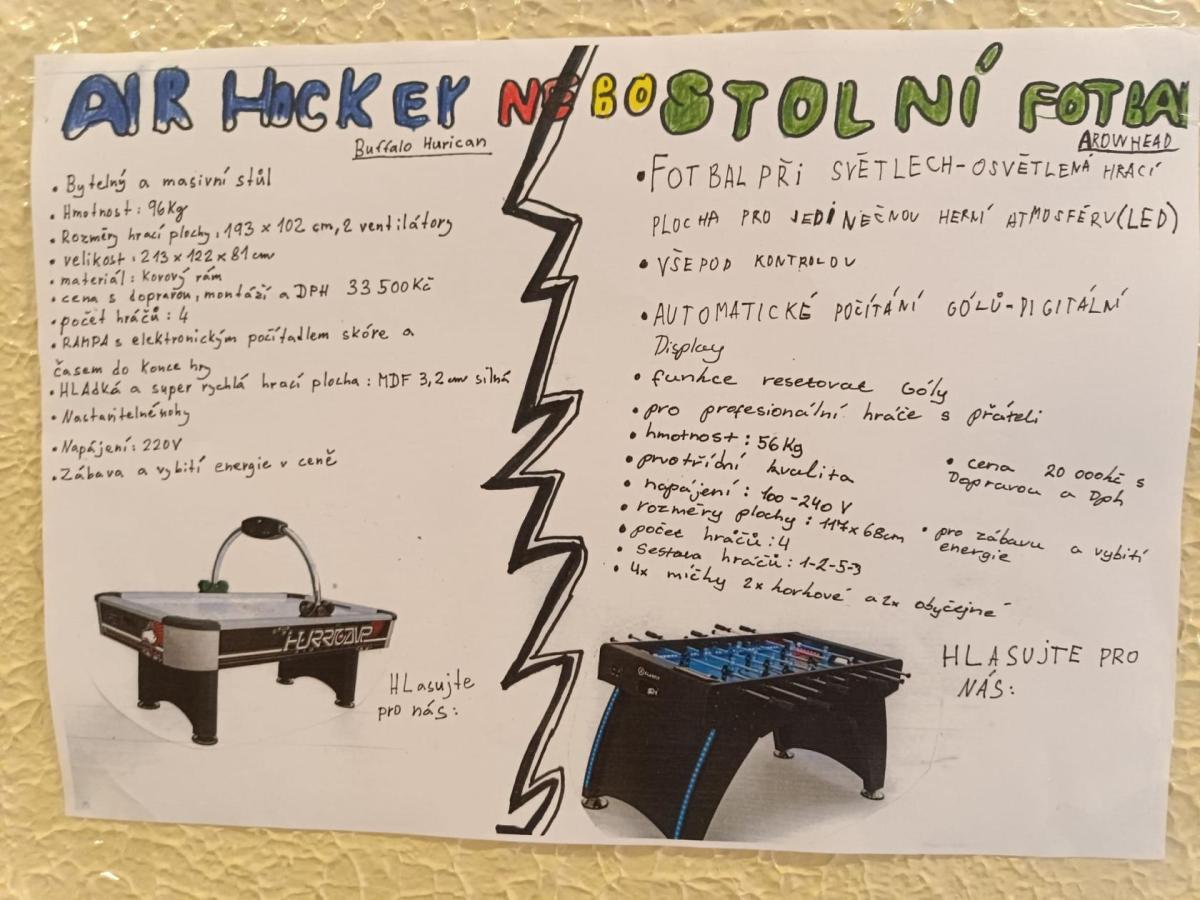 AIR HOCKEY NEBO STOLNÍ FOTBAL
Buffalo Hurican
• Bytelný a masivní stůl
• Hmotnost: 96Kg
• Rozměry hrací plochy: 193 x 102 cm, 2 ventilátory
• velikost: 213 x 122 x 81 cm
• materiál: Kovový rám
• cena s dopravou, montáží a DPH 33 500 Kč
• počet hráčů: 4
• RAMPA s elektronickým počítadlem skóre a
časem do konce hry
• HLAdká a super rychlá hrací plocha: MDF 3,2 cm silná
• Nastavitelné nohy
• Napájení: 220V
• Zábava a vybití energie v ceně
HURRICANE
HLasujte
pro nás:
AROWHEAD
• FOTBAL PŘI SVĚTLECH-OSVĚTLENÁ HRACÍ
PLOCHA PRO JEDINEČNOU HERNÍ ATMOSFÉRU(LED)
• VŠE POD KONTROLOU
• AUTOMATICKÉ POČÍTÁNÍ GÓLŮ-DIGITÁLNÍ
Display
• funkce resetovat Góly
• pro profesionální hráče s přáteli
• hmotnost: 56Kg
• prvotřídní kvalita
• napájení: 100-240 V
• rozměry plochy: 117x68cm
• počet hráčů: 4
• Sestava hráčů: 1-2-5-3
• 4x míčky 2x korkové a 2x obyčejné
• cena 20 000kč s
Dopravou a Dph
• pro zábavu a vybití
energie
HLASUJTE PRO
NÁS: